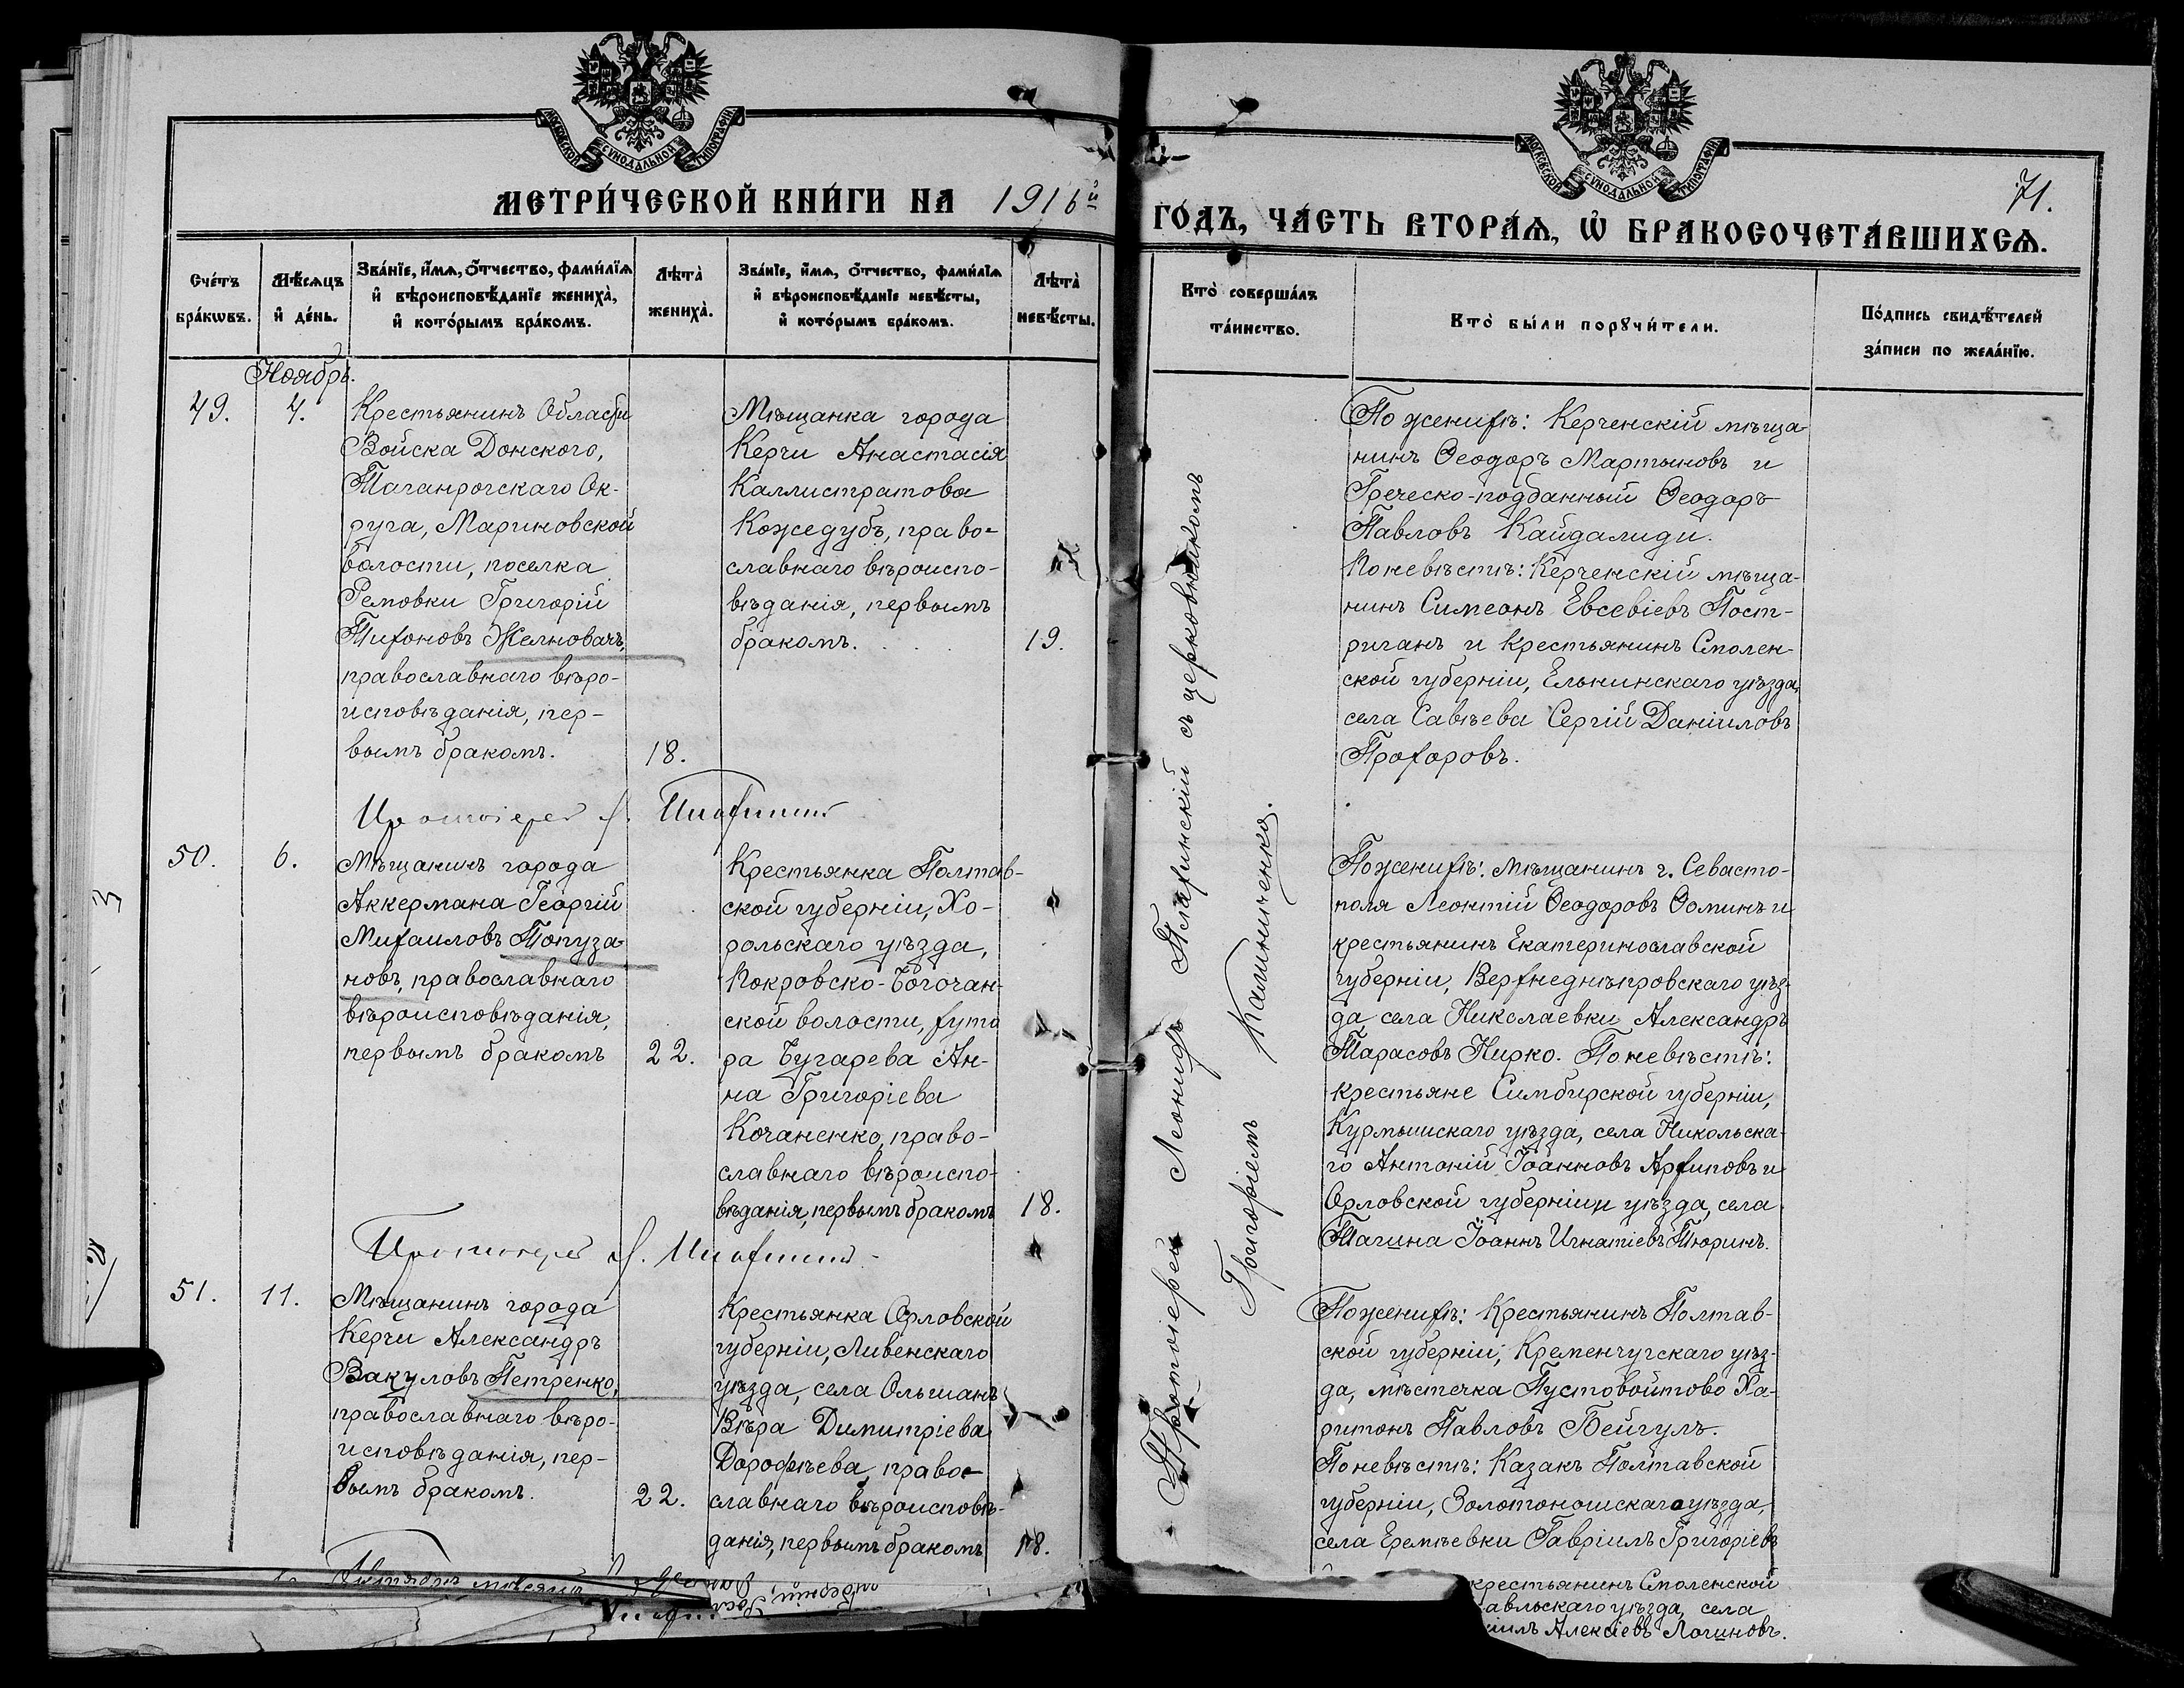 МОСКОВСКОЙ СѴНОДАЛЬНОЙ ТИПОГРАФІИ
МЕТРИ́ЧЕСКОЙ КНИ́ГИ НА 1916й
Сче́тъ бра́кѡвъ.
Мѣ́сѧцъ и҆ де́нь.
Зва́нїе, и҆́мѧ, ѻ҆́тчество, фами́лїѧ и҆ вѣроисповѣ́данїе жениха̀, и҆ кото́рымъ бра́комъ.
Лѣта̀ жениха̀.
Зва́нїе, и҆́мѧ, ѻ҆́тчество, фами́лїѧ и҆ вѣроисповѣ́данїе невѣ́сты, и҆ кото́рымъ бра́комъ.
Лѣта̀ невѣ́сты.
Ноябрь.
49.
4.
Крестьянинъ Области
Войска Донского,
Таганрогскаго Ок-
руга, Мариновской
волости, поселка
Ремовки Григорій
Тихоновъ Желновачъ,
православнаго вѣро-
исповѣданія, пер-
вымъ бракомъ.
18.
Мѣщанка города
Керчи Анастасія
Каллистратова
Кожедубъ, право-
славнаго вѣроиспо-
вѣданія, первымъ
бракомъ.
19.
Протоіерей Л.
50.
6.
Мѣщанинъ города
Аккермана Георгій
Михаиловъ Топуза-
новъ, православнаго
вѣроисповѣданія,
первымъ бракомъ
22.
Крестьянка Полтав-
ской губерніи, Хо-
рольскаго уѣзда,
Покровско-Богочан-
ской волости, хуто
ра Бугарева Ан-
на Григоріева
Кочаненко, право-
славнаго вѣроиспо-
вѣданія, первымъ бракомъ
18.
Протоіерей Л.
51.
11.
Мѣщанинъ города
Керчи Александръ
Вакуловъ Петренко,
православнаго вѣро-
исповѣданія, пер-
вымъ бракомъ.
22.
Крестьянка Орловской
губерніи, Ливенскаго
уѣзда, села Ольшанъ
Вѣра Димитріева
Дорофѣева, право-
славнаго вѣроисповѣ-
данія, первымъ бракомъ
18.
МОСКОВСКОЙ СѴНОДАЛЬНОЙ ТИПОГРАФІИ
71.
ГО́ДЪ, ЧА́СТЬ ВТОРА́Ѧ, Ѡ҆ БРАКОСОЧЕТА́ВШИХСѦ.
Кто̀ соверша́лъ та́инство.
Кто̀ бы́ли порꙋчи́тели.
По́дпись свидѣ́телей за́писи по жела́нїю.
Протоіерей Леонидъ съ церковникомъ
Григоріемъ Калиниченко.
По женихѣ: Керченскій мѣща-
нинъ Ѳеодоръ Мартыновъ и
Греческо-подданный Ѳеодоръ
Павловъ Кайдалиди.
По невѣстѣ: Керченскій мѣща-
нинъ Симеонъ Евсевіевъ Пост-
риганъ и крестьянинъ Смолен-
ской губерніи, Ельнинскаго уѣзда,
села Савѣева Сергій Даніиловъ
Прохоровъ.
По женихѣ: мѣщанинъ г. Севасто-
поля Леонтій Ѳеодоровъ Ѳоминъ и
крестьянинъ Екатеринославской
губерніи, Верхнеднѣпровскаго уѣз-
да, села Николаевки Александръ
Тарасовъ Кирко. По невѣстѣ:
крестьяне Симбирской губерніи,
Курмышскаго уѣзда, села Никольска-
го Антоній Іоанновъ Архиповъ и
Орловской губерніи и уѣзда, села
Тагина Іоаннъ Игнатіевъ Тюринъ.
По женихѣ: Крестьянинъ Полтав-
ской губерніи, Кременчугскаго уѣз-
да, мѣстечка Пустовойтово Ха-
ритонъ Павловъ Бейгулъ.
По невѣстѣ: Казакъ Полтавской
губерніи, Золотоношскаго уѣзда,
села Еремѣевки Гавріилъ Григоріевъ
крестьянинъ Смоленской
авльскаго уѣзда, села
іилъ Алексіевъ Логиновъ.